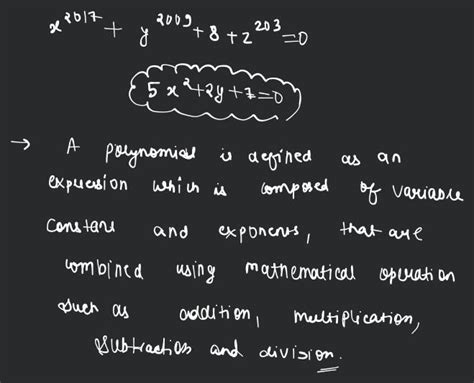 x^2017 + y^2009 + 8 + z^203 = 0
5x^2 + 2y + 7 = 0
→ A polynomial is defined as an
expression which is composed of variable
constant and exponents, that are
combined using mathematical operation
such as addition, multiplication,
subtraction and division.